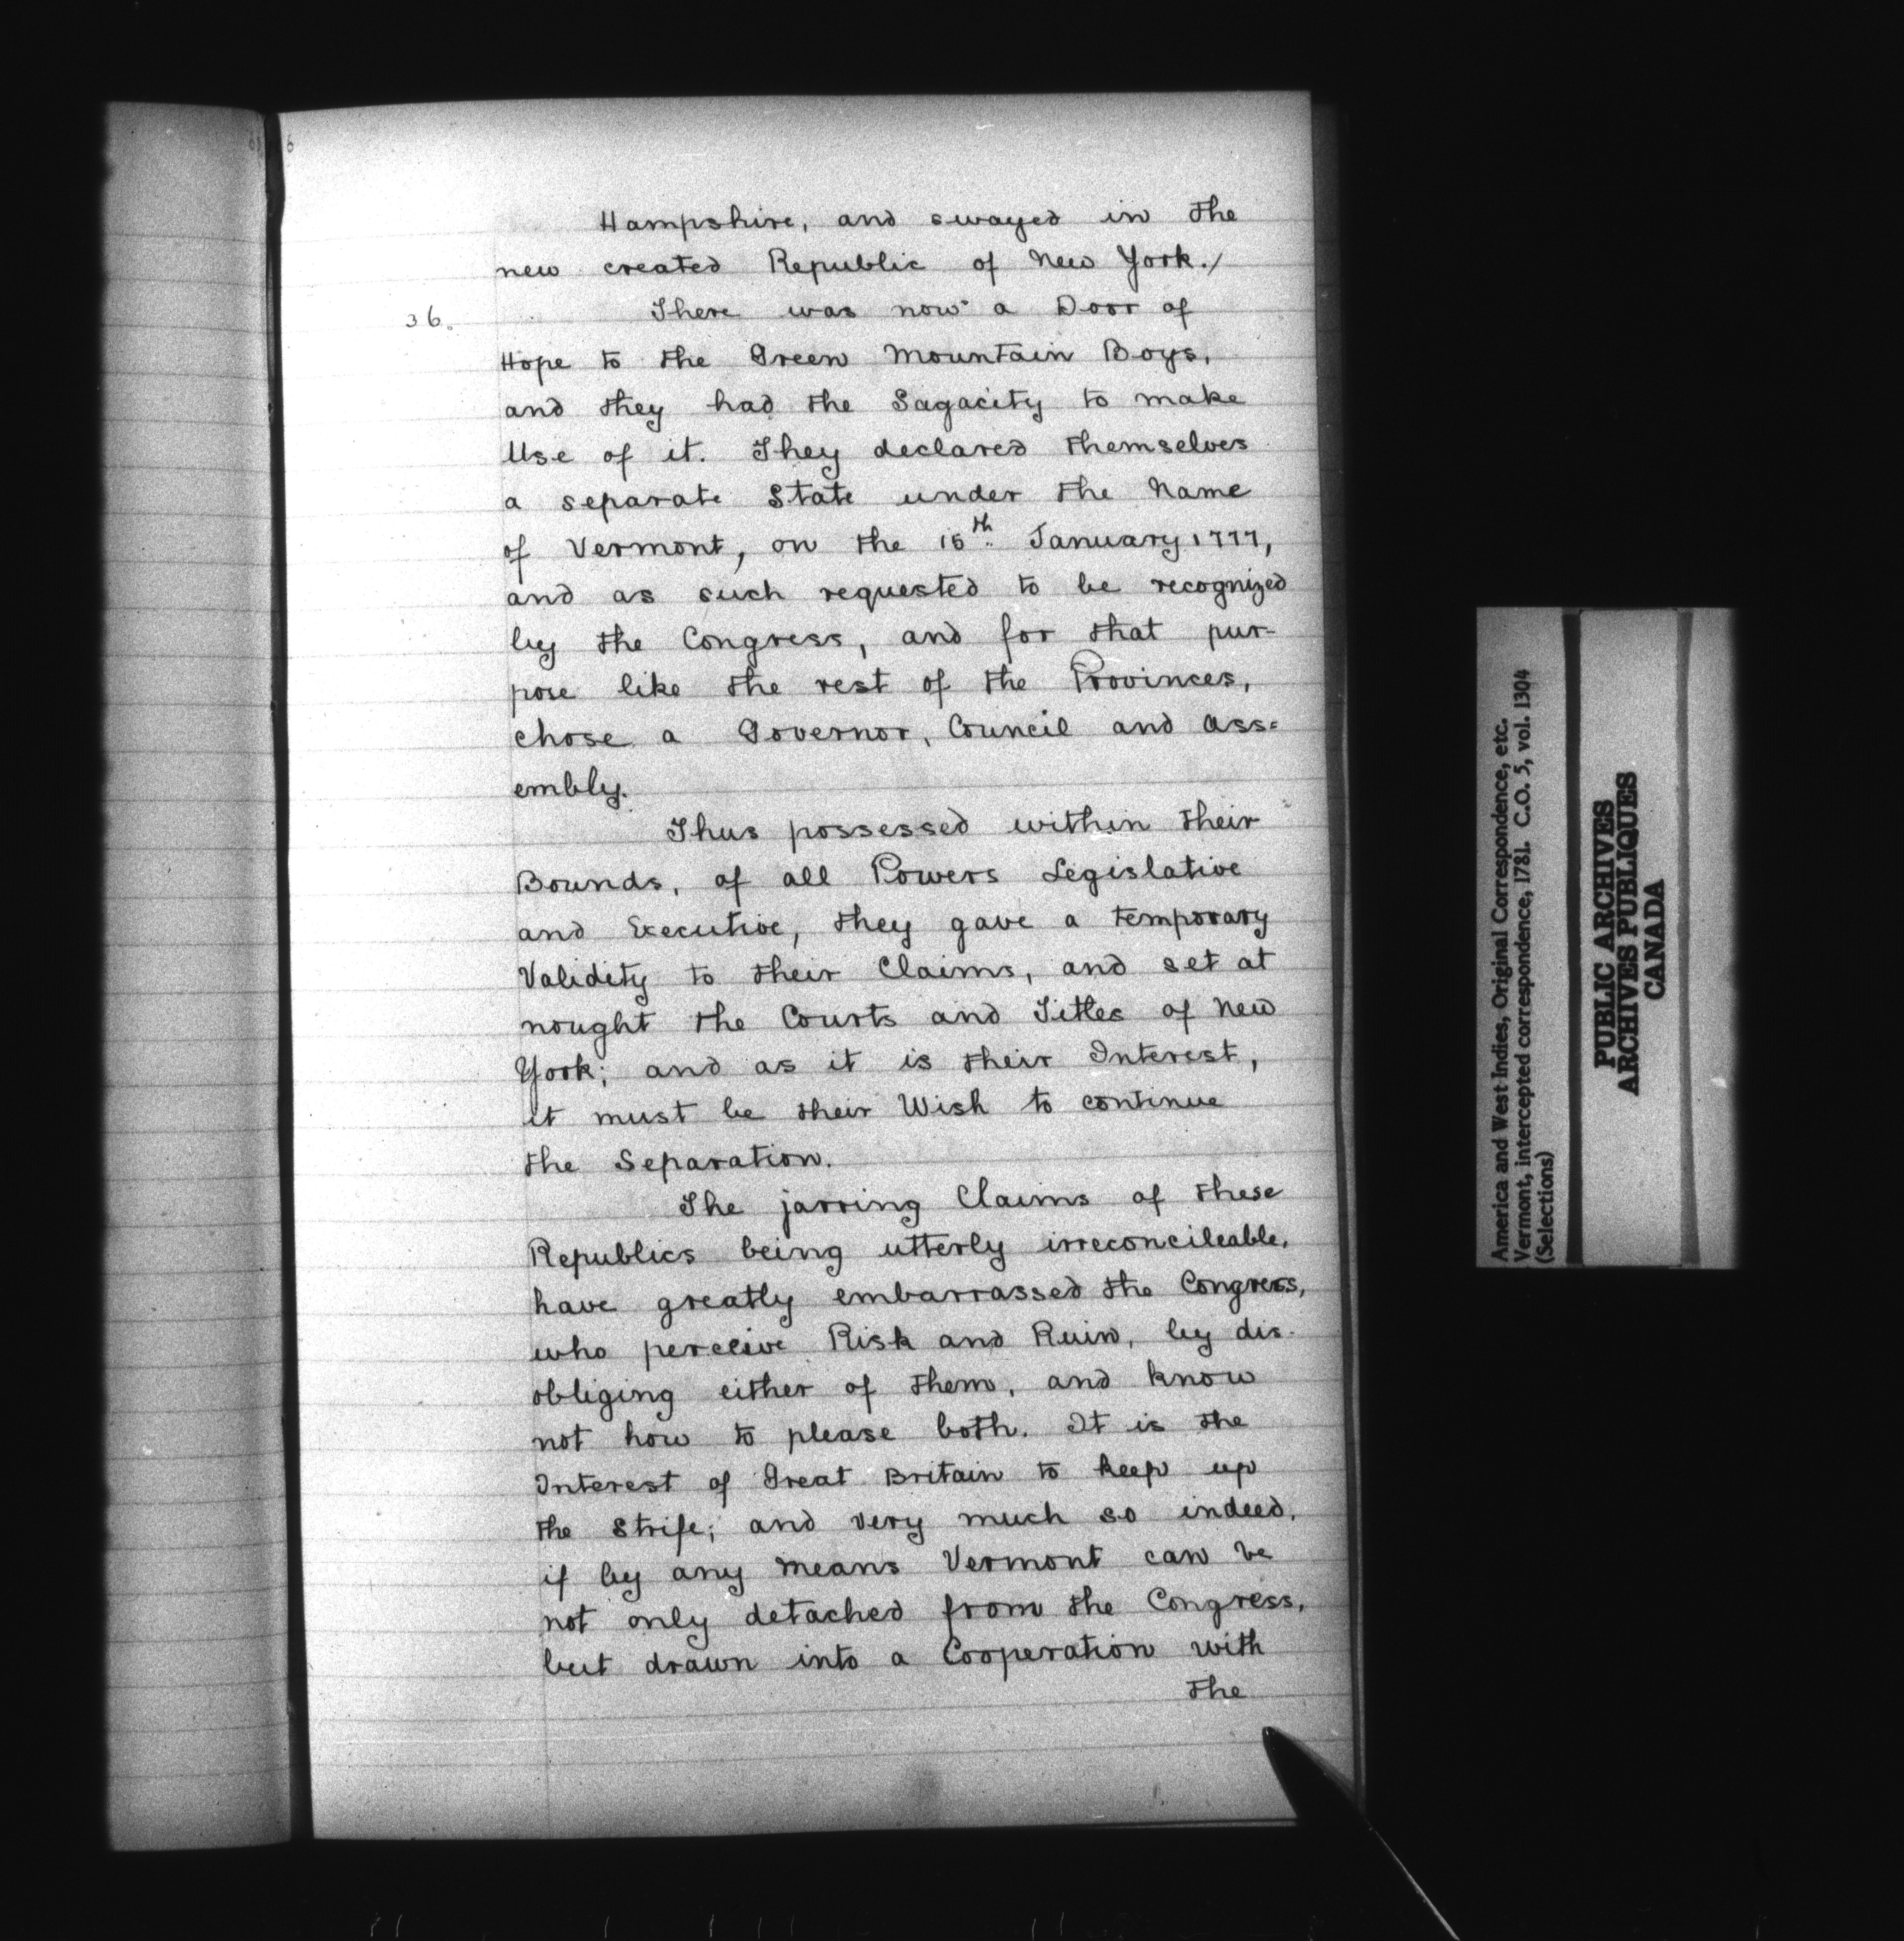 Hampshire, and swayed in the
new created Republic of New York./
36.
There was now a Door of
Hope to the Green Mountain Boys,
and they had the Sagacity to make
Use of it. They declared themselves
a separate State under the Name
of Vermont, on the 15th. January 1777,
and as such requested to be recognized
by the Congress, and for that pur-
pose like the rest of the Provinces,
chose a Governor, Council and Ass=
embly.
Thus possessed within their
Bounds, of all Powers Legislative
and Executive, they gave a temporary
Validity to their Claims, and set at
nought the Courts and Titles of New
York; and as it is their Interest,
it must be their Wish to continue
the Separation.
The jarring Claims of these
Republics being utterly irreconcileable,
have greatly embarrassed the Congress,
who perceive Risk and Ruin, by dis-
obliging either of them, and know
not how to please both. It is the
Interest of Great Britain to keep up
the Strife; and very much so indeed,
if by any means Vermont can be
not only detached from the Congress,
but drawn into a Cooperation with
the
America and West Indies, Original Correspondence, etc.
Vermont, intercepted correspondence, 1781. C.O. 5, vol. 1304
(Selections)
PUBLIC ARCHIVES
ARCHIVES PUBLIQUES
CANADA